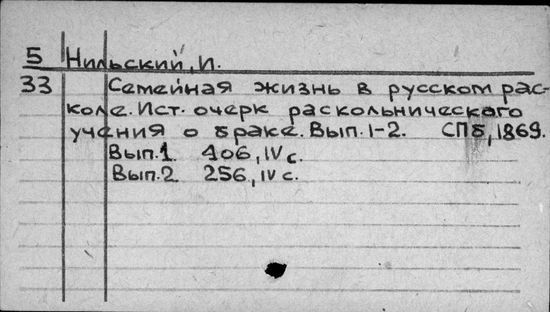 5 Нильский, И.
33 Семейная жизнь в русском рас-
коле. Ист. очерк раскольнического
учения о браке. Вып. 1-2. СПб, 1869.
Вып. 1 406, IV с.
Вып. 2 256, IV с.